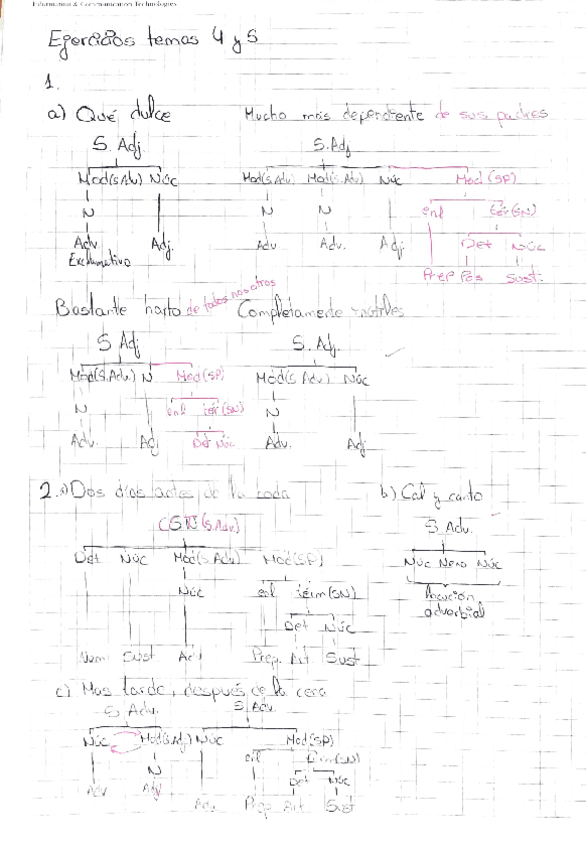 Information & Communication Technologies
Ejercicios temas 4 y 5
1.
a) Qué dulce Mucho más dependiente de sus padres
S. Adj. S. Adj
Mod(S.Adv) Núc Mod(S.Adv) Mod(S.Adv) Núc Mod(SP)
N N N enl Tér(SN)
Adv Adj. Adv Adv. Adj. Det Núc
Exclamativo Prep Pos Sust.
Bastante harto de todos nosotros Completamente inútiles
S Adj S. Adj.
Mod(S.Adv.) N Mod(SP) Mod(S Adv) Núc
N enl tér(SN) N
Adv. Adj Det Núc Adv. Adj
2. a) Dos días antes de la boda b) Cal y canto
(S.Adv) S Adv.
Det Núc Mod(S Adv) Mod(SP) Núc Nexo Núc
Núc enl térm(SN) locución
Det Núc adverbial
Num Sust Adv Prep. Art Sust
c) Mas tarde, después de la cena
S Adv. S Adv.
Núc Mod(S.Adj) Núc Mod(SP)
N enl Térm(SN)
Adv Adv Det Núc
Adv Prep Art Sust